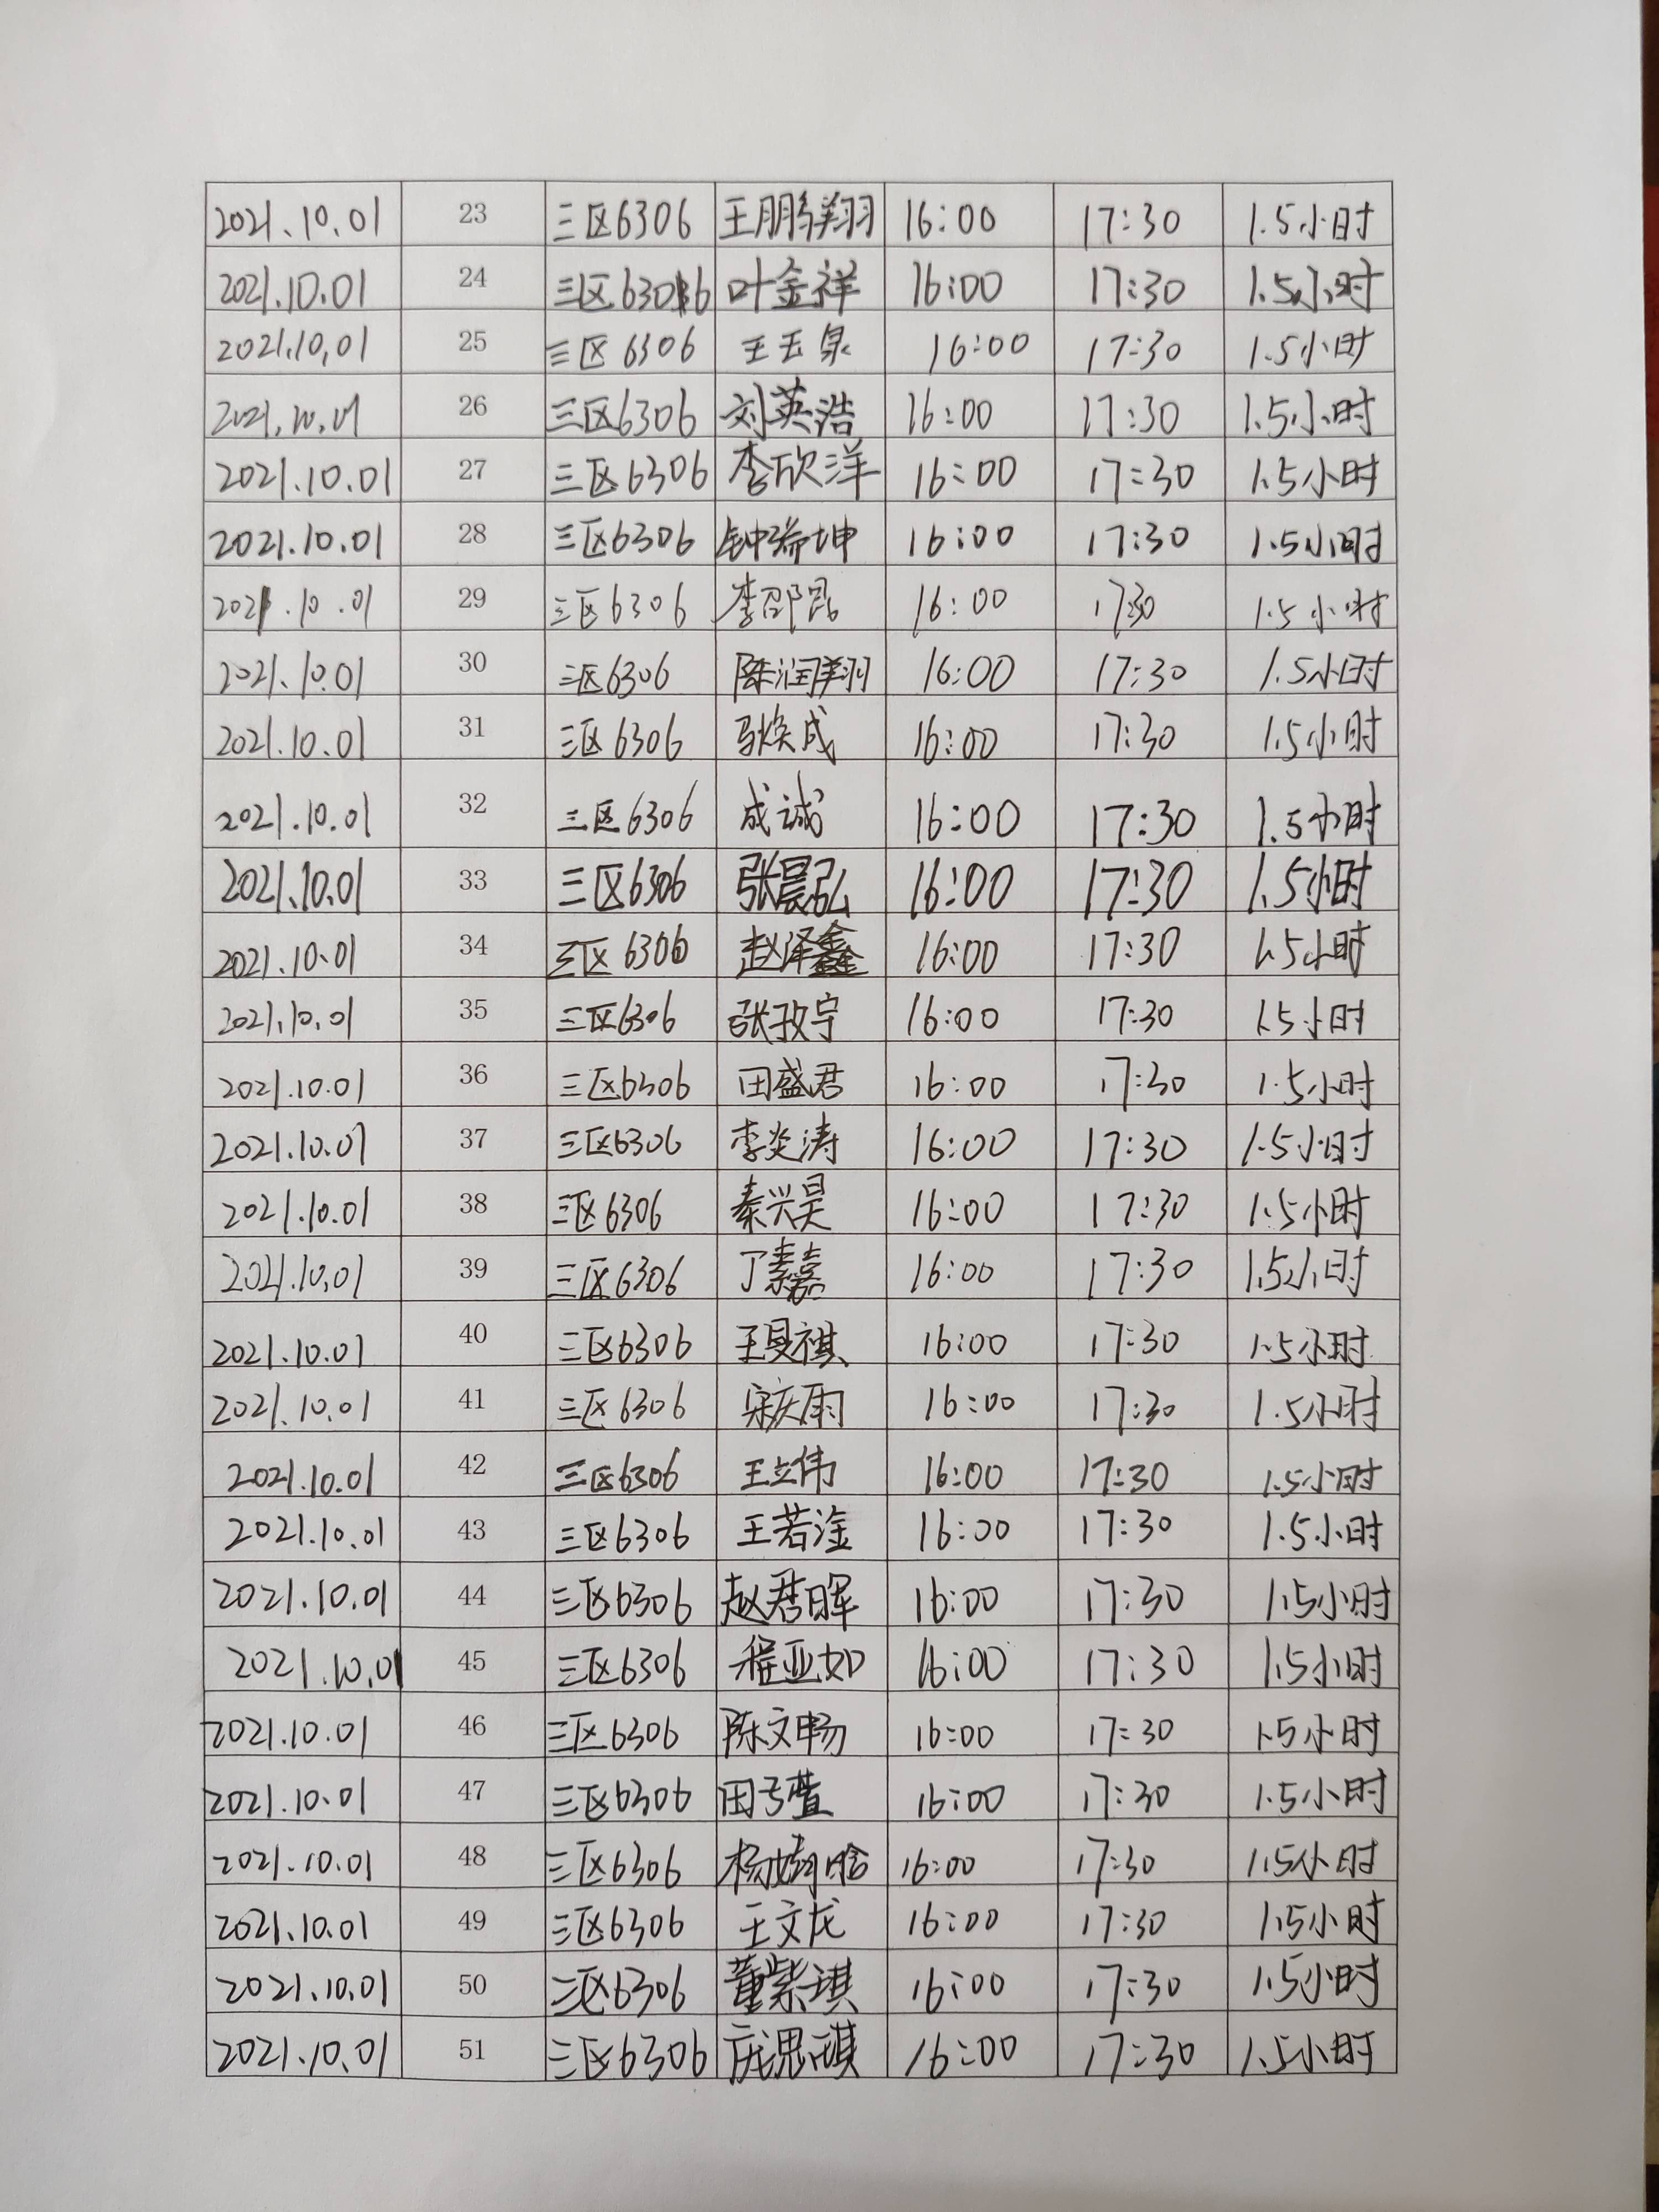 2021.10.01 23 三区6306 王鹏翔 16:00 17:30 1.5小时
2021.10.01 24 三区6306 叶金祥 16:00 17:30 1.5小时
2021.10.01 25 三区6306 王玉泉 16:00 17:30 1.5小时
2021.10.01 26 三区6306 刘英浩 16:00 17:30 1.5小时
2021.10.01 27 三区6306 李欣洋 16:00 17:30 1.5小时
2021.10.01 28 三区6306 钟瑞坤 16:00 17:30 1.5小时
2021.10.01 29 三区6306 李邵昆 16:00 17:30 1.5小时
2021.10.01 30 三区6306 陈润翔 16:00 17:30 1.5小时
2021.10.01 31 三区6306 16:00 17:30 1.5小时
2021.10.01 32 三区6306 成诚 16:00 17:30 1.5小时
2021.10.01 33 三区6306 张晨弘 16:00 17:30 1.5小时
2021.10.01 34 三区6306 赵泽鑫 16:00 17:30 1.5小时
2021.10.01 35 三区6306 张孜宁 16:00 17:30 1.5小时
2021.10.01 36 三区6306 田盛君 16:00 17:30 1.5小时
2021.10.01 37 三区6306 李炎涛 16:00 17:30 1.5小时
2021.10.01 38 三区6306 秦兴昊 16:00 17:30 1.5小时
2021.10.01 39 三区6306 丁素嘉 16:00 17:30 1.5小时
2021.10.01 40 三区6306 王旻祺 16:00 17:30 1.5小时
2021.10.01 41 三区6306 宋庆雨 16:00 17:30 1.5小时
2021.10.01 42 三区6306 王立伟 16:00 17:30 1.5小时
2021.10.01 43 三区6306 王若淦 16:00 17:30 1.5小时
2021.10.01 44 三区6306 赵君晖 16:00 17:30 1.5小时
2021.10.01 45 三区6306 程亚如 16:00 17:30 1.5小时
2021.10.01 46 三区6306 陈文畅 16:00 17:30 1.5小时
2021.10.01 47 三区6306 16:00 17:30 1.5小时
2021.10.01 48 三区6306 杨婧晗 16:00 17:30 1.5小时
2021.10.01 49 三区6306 王文龙 16:00 17:30 1.5小时
2021.10.01 50 三区6306 董紫琪 16:00 17:30 1.5小时
2021.10.01 51 三区6306 庞思琪 16:00 17:30 1.5小时